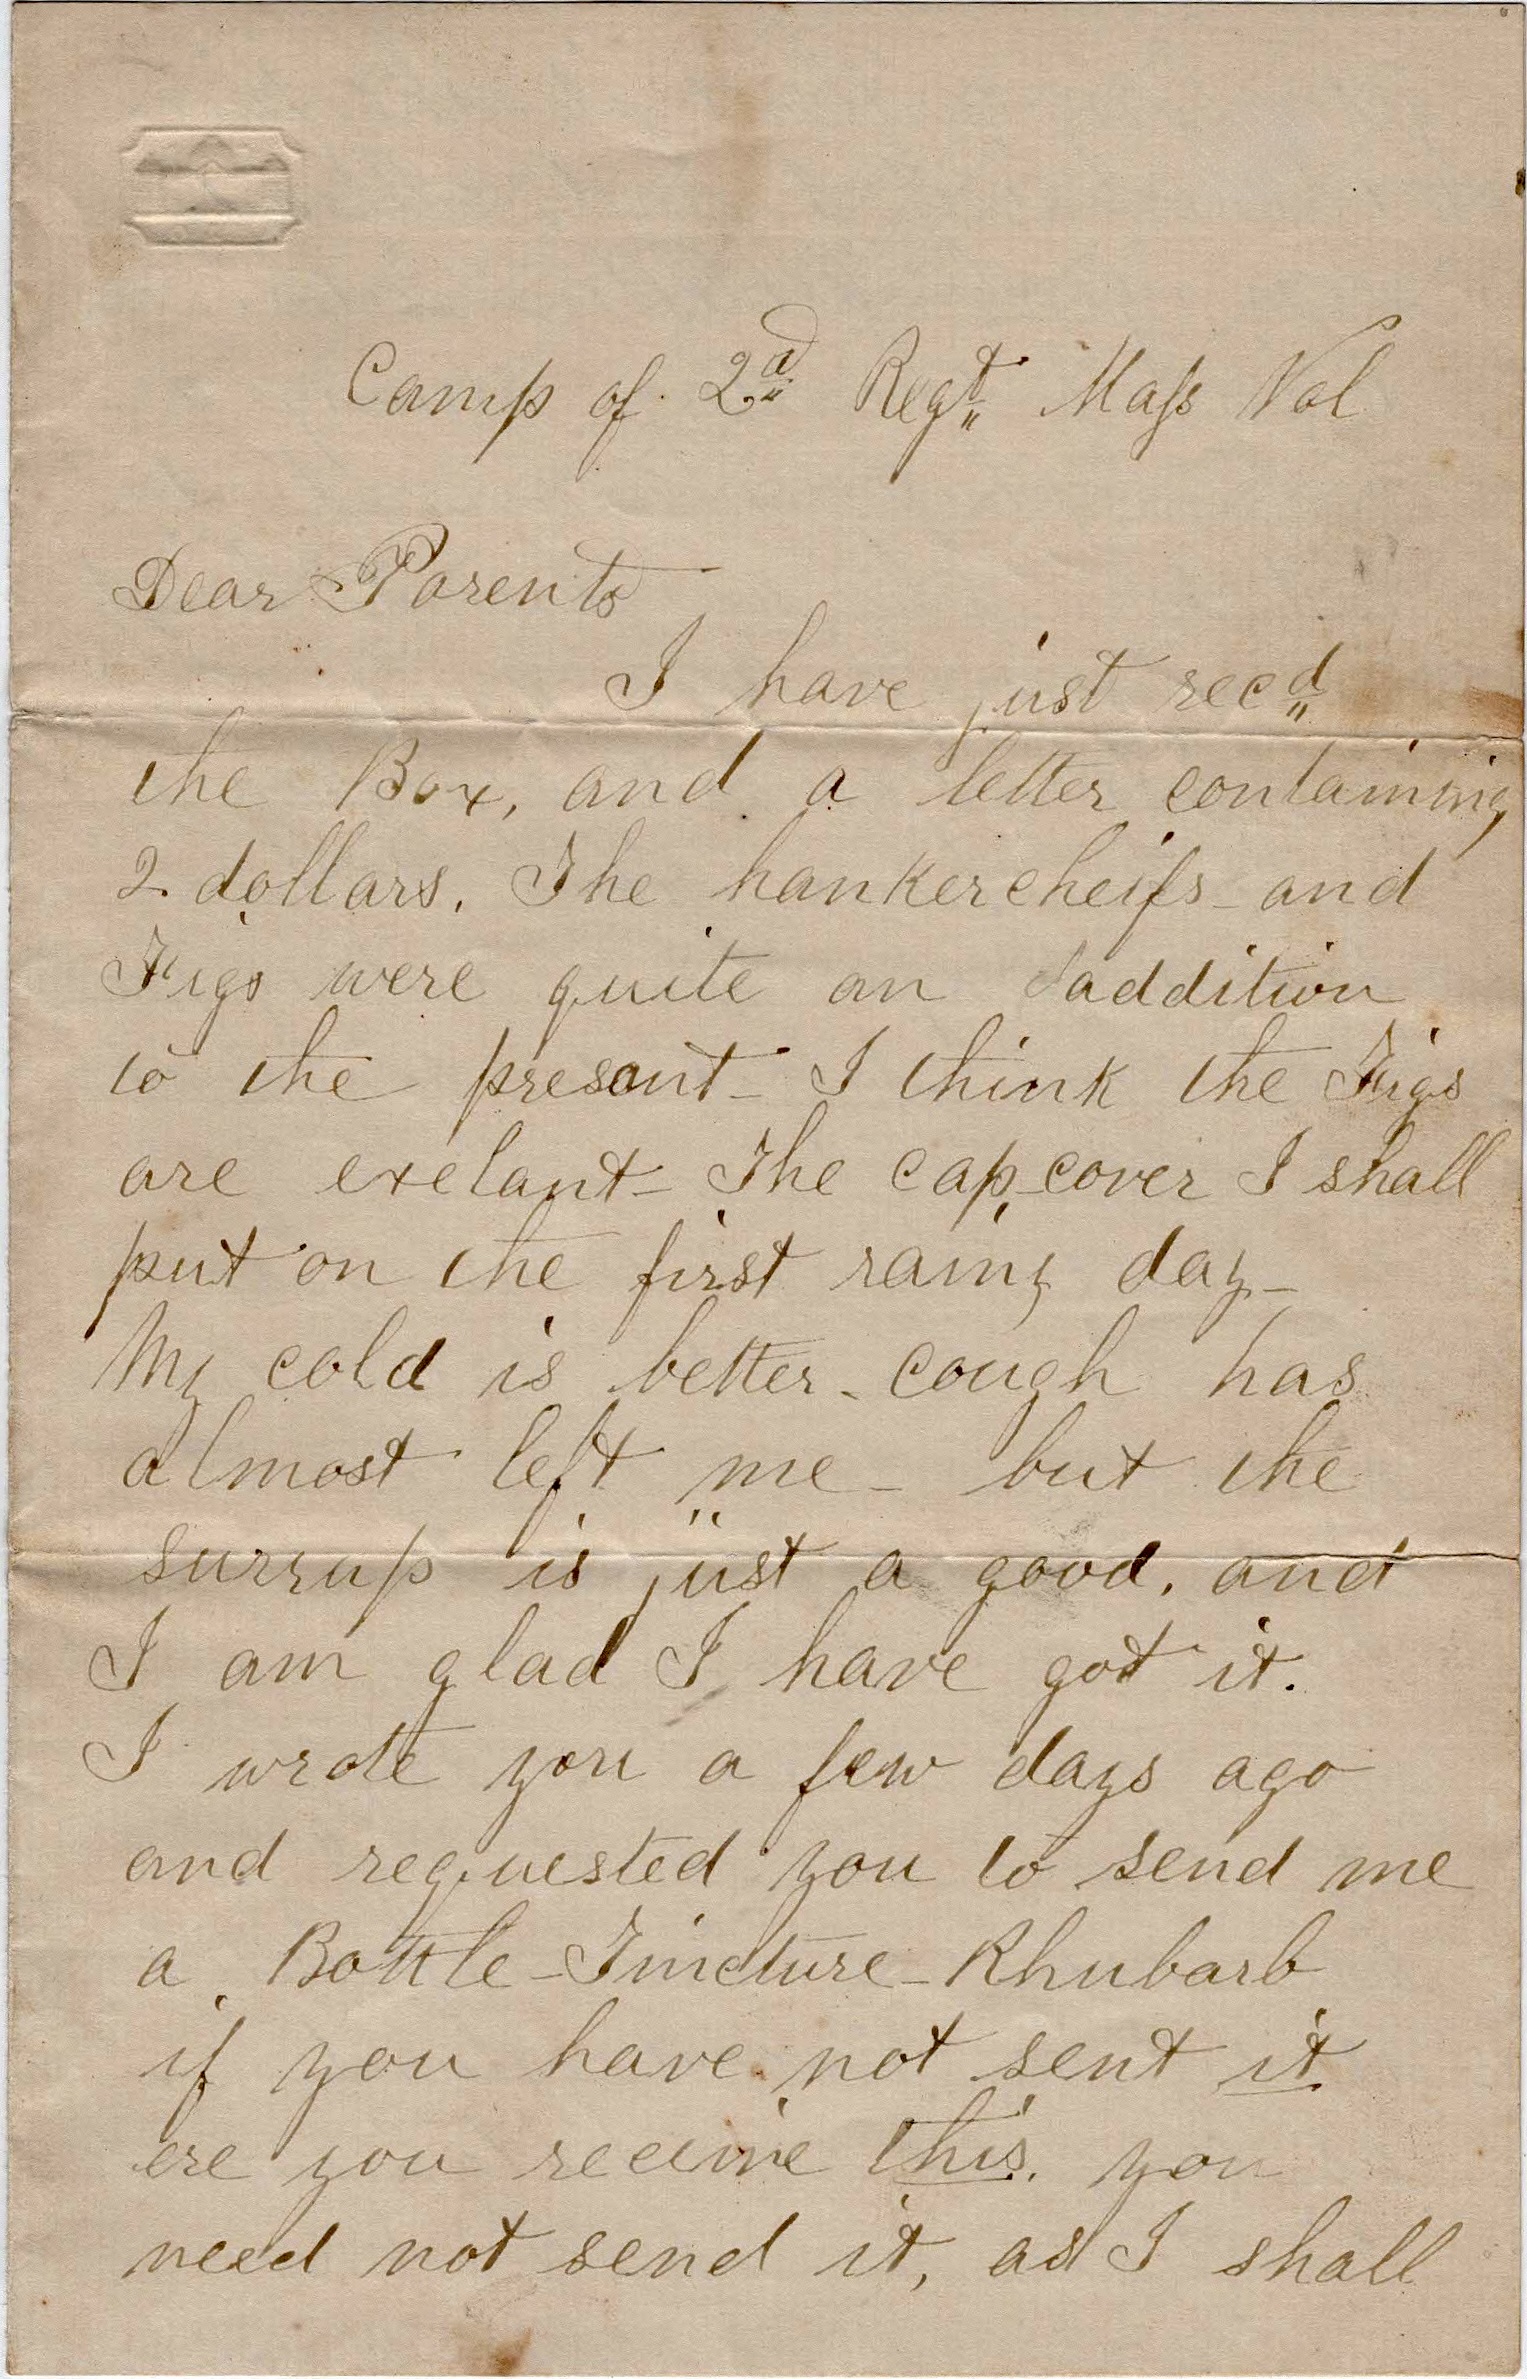 Camp of 2d Regt Mass Vol
Dear Parents
I have just recd
the Box, and a letter containing
2 dollars. The hankercheifs - and
Figs were quite an addition
to the presant - I think the Figs
are exelant - The cap-cover I shall
put on the first rainy day -
My cold is better - cough has
almost left me - but the
surrup is just a good. and
I am glad I have got it.
I wrote you a few days ago
and requested you to send me
a Bottle - Tincture - Rhubarb
if you have not sent it
ere you receive this. you
need not send it, as I shall